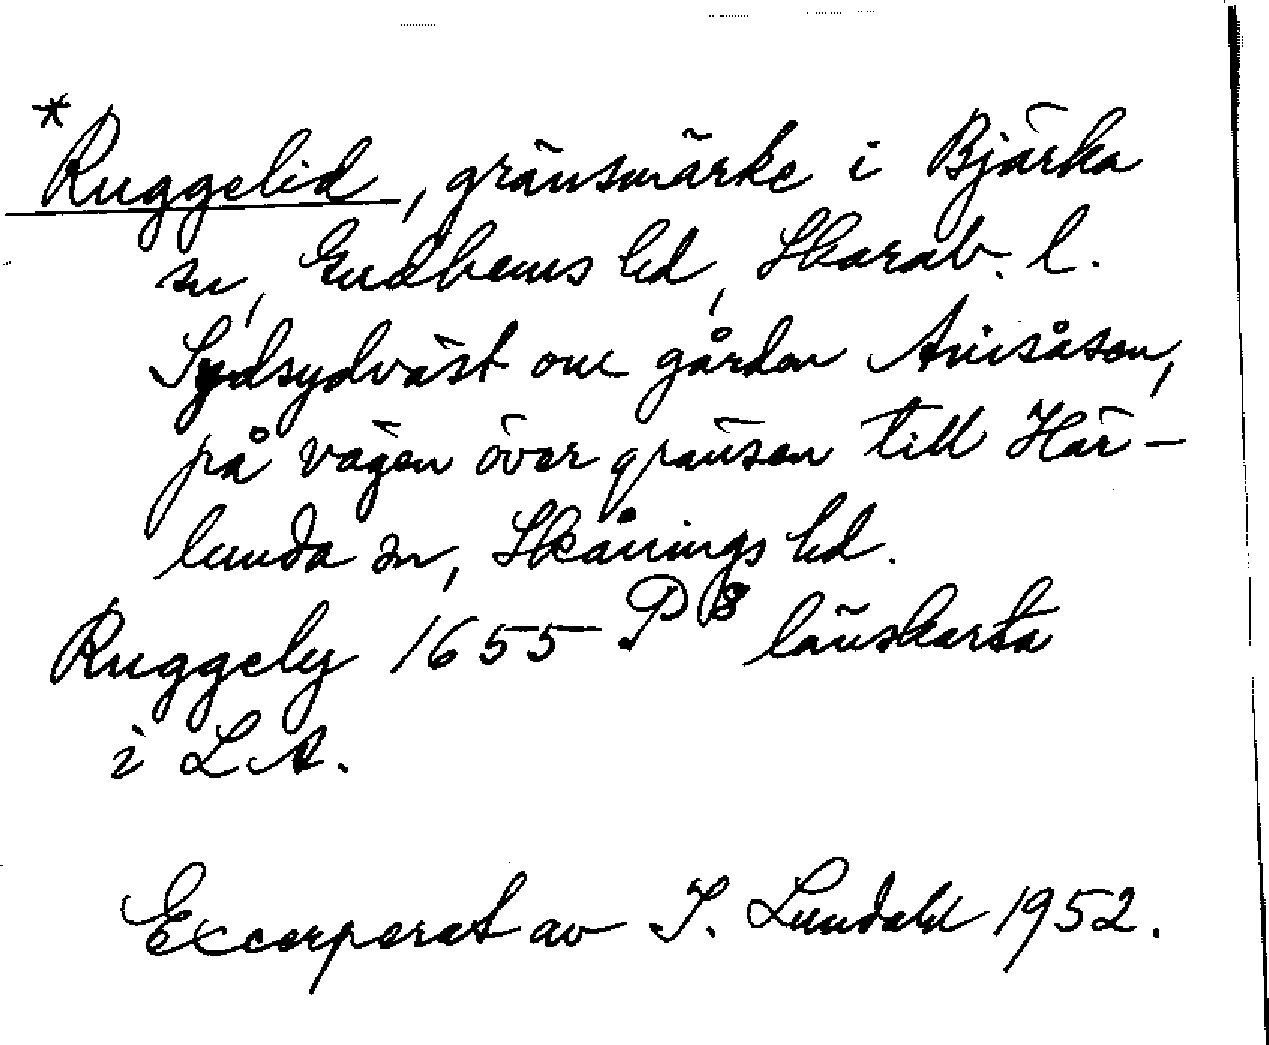 *Ruggelid, gränsmärke i Bjärka
sn, Gudhems hd, Skarab. l.
Sydsydväst om gården Anisåsen,
på vägen över gränsen till Här-
lunda sn, Skånings hd.
Ruggely 1655 P 8 länskarta
i LA.
Excerperat av I. Lundahl 1952.